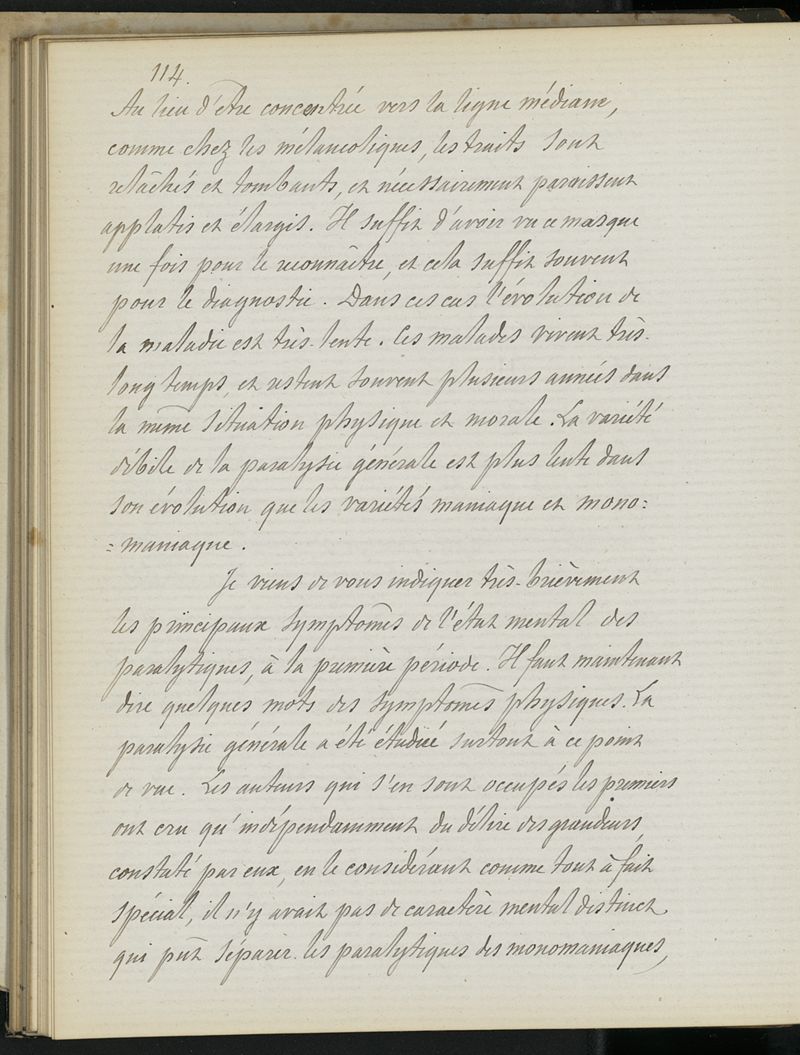 114.
Au lieu d'être concentrée vers la ligne médiane,
comme chez les mélancoliques, les traits sont
relâchés et tombants, et nécessairement paraissent
applatis et élargis. Il suffit d'avoir vu ce masque
une fois pour le reconnaître, et cela suffit souvent
pour le diagnostic. Dans ces cas l'évolution de
la maladie est très-lente. Ces malades vivent très-
longtemps, et restent souvent plusieurs années dans
la même situation physique et morale. La variété
débile de la paralysie générale est plus lente dans
son évolution que les variétés maniaque et mono=
=maniaque.
Je viens de vous indiquer très-brièvement
les principaux symptômes de l'état mental des
paralytiques, à la première période. Il faut maintenant
dire quelques mots des symptômes physiques. La
paralysie générale a été étudiée surtout à ce point
de vue. Les auteurs qui s'en sont occupés les premiers
ont cru qu'indépendamment du délire des grandeurs,
constaté par eux, en le considérant comme tout à fait
spécial, il n'y avait pas de caractère mental distinct
qui pût séparer les paralytiques des monomaniaques,